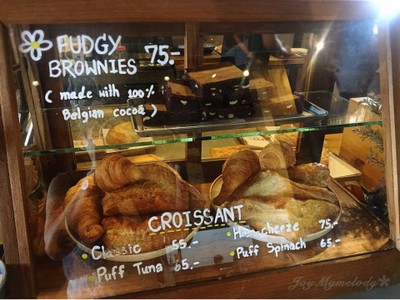 FUDGY
BROWNIES 75.-
( made with 100%
Belgian cocoa )
CROISSANT
Classic 55.-
Puff Tuna 65.-
Ham cheeze 75.-
Puff Spinach 65.-
JoyMymelody